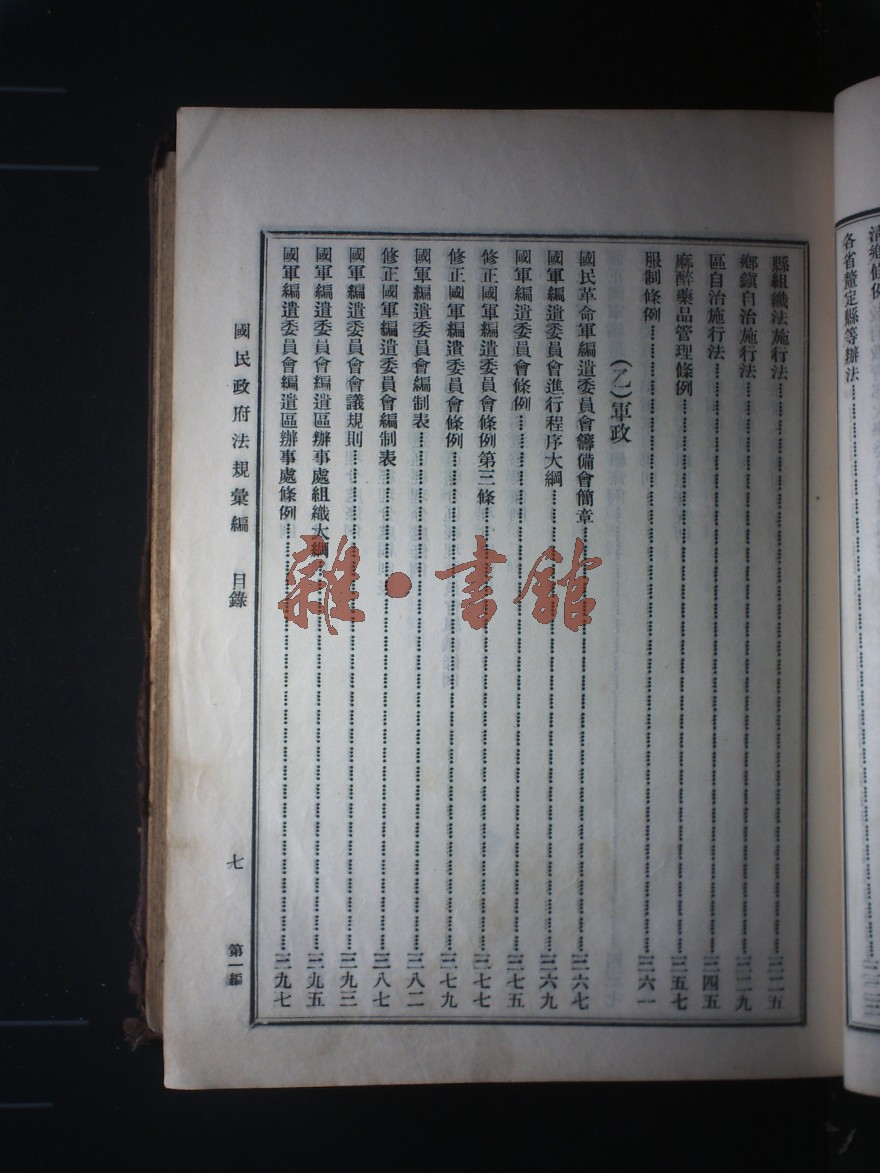 各省釐定縣等辦法
縣組織法施行法 三二五
鄉鎮自治施行法 三二九
區自治施行法 三四五
麻醉藥品管理條例 三五七
服制條例 三六一
(乙)軍政
國民革命軍編遣委員會籌備會簡章 三六七
國軍編遣委員會進行程序大綱 三六九
國軍編遣委員會條例 三七五
修正國軍編遣委員會條例第三條 三七七
修正國軍編遣委員會條例 三七九
國軍編遣委員會編制表 三八二
修正國軍編遣委員會編制表 三八七
國軍編遣委員會會議規則 三九三
國軍編遣委員會編遣區辦事處組織大綱 三九五
國軍編遣委員會編遣區辦事處條例 三九七
國民政府法規彙編 目錄 七 第一編
雜·書館